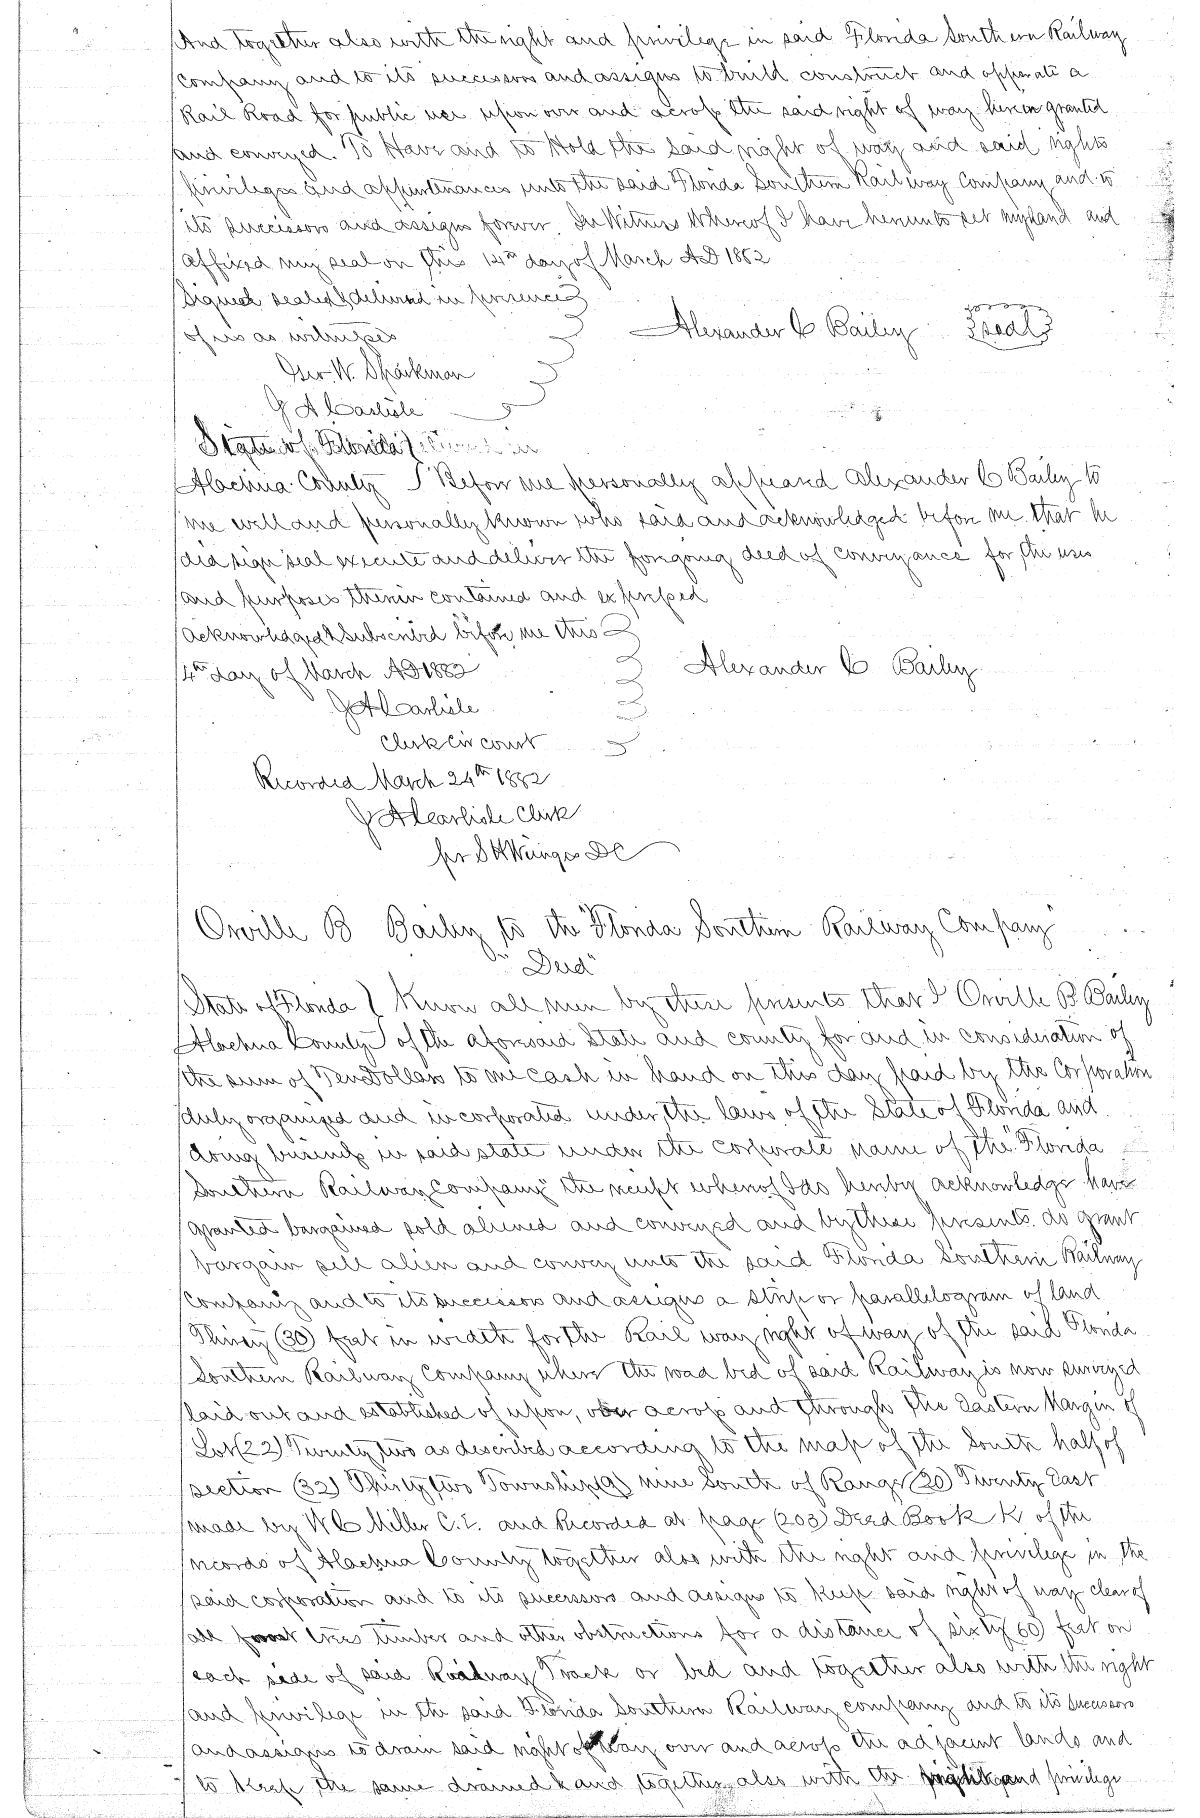 And together also with the right and privilege in said Florida Southern Railway
Company and to its successors and assigns to build construct and opperate a
Rail Road for public use upon over and across the said right of way herein granted
and conveyed. To Have and to Hold the said right of way and said rights
privileges and appurtenances unto the said Florida Southern Railway Company and to
its successors and assigns forever. In Witness Whereof I have hereunto set my hand and
affixed my seal on this 14th day of March AD 1882
Signed sealed & delivered in presence
of us as witnesses
Alexander C Bailey seal
Geo. W. Sparkman
J A Carlisle
State of Florida
Alachua County Before me personally appeared Alexander C Bailey to
me well and personally known who said and acknowledged before me that he
did sign seal execute and deliver the foregoing deed of conveyance for the uses
and purposes therein contained and expressed
Acknowledged & Subscribed before me this
4th day of March AD 1882
Alexander C Bailey
J A Carlisle
Clerk Cir court
Recorded March 24th 1882
J A Carlisle Clerk
per S H DC
Orville B Bailey to the "Florida Southern Railway Company"
"Deed"
State of Florida Know all men by these presents that I Orville B Bailey
Alachua County of the aforesaid State and county for and in consideration of
the sum of Ten Dollars to me cash in hand on this day paid by the Corporation
duly organized and incorporated under the laws of the State of Florida and
doing business in said state under the corporate name of the "Florida
Southern Railway Company" the receipt whereof I do hereby acknowledge have
granted bargained sold aliened and conveyed and by these presents do grant
bargain sell alien and convey unto the said Florida Southern Railway
Company and to its successors and assigns a strip or parallelogram of land
Thirty (30) feet in width for the Rail way right of way of the said Florida
Southern Railway Company where the road bed of said Railway is now surveyed
laid out and established of upon, over across and through the Eastern Margin of
Lot (22) Twenty two as described according to the map of the South half of
section (32) Thirty two Township (9) nine South of Range (20) Twenty East
made by W C Miller C.E. and Recorded at page (203) Deed Book K of the
records of Alachua County together also with the right and privilege in the
said corporation and to its successors and assigns to keep said right of way clear of
all trees timber and other obstructions for a distance of sixty (60) feet on
each side of said Railway Track or bed and together also with the right
and privilege in the said Florida Southern Railway company and to its successors
and assigns to drain said right of way over and across the adjacent lands and
to keep the same drained and together also with the right and privilege